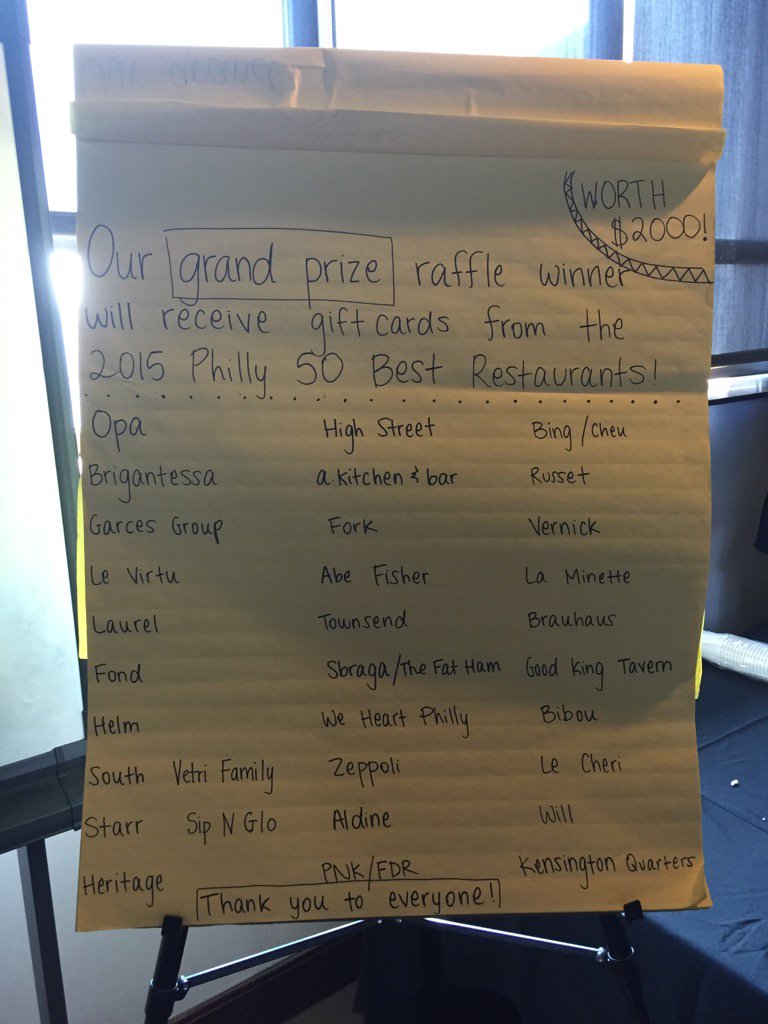 WORTH
$2000!
Our grand prize raffle winner
will receive gift cards from the
2015 Philly 50 Best Restaurants!
Opa High Street Bing/Cheu
Brigantessa a.kitchen & bar Russet
Garces Group Fork Vernick
Le Virtu Abe Fisher La Minette
Laurel Townsend Brauhaus
Fond Sbraga/The Fat Ham Good King Tavern
Helm We Heart Philly Bibou
South Vetri Family Zeppoli Le Cheri
Starr Sip N Glo Aldine Will
Heritage PNK/FDR Kensington Quarters
Thank you to everyone!